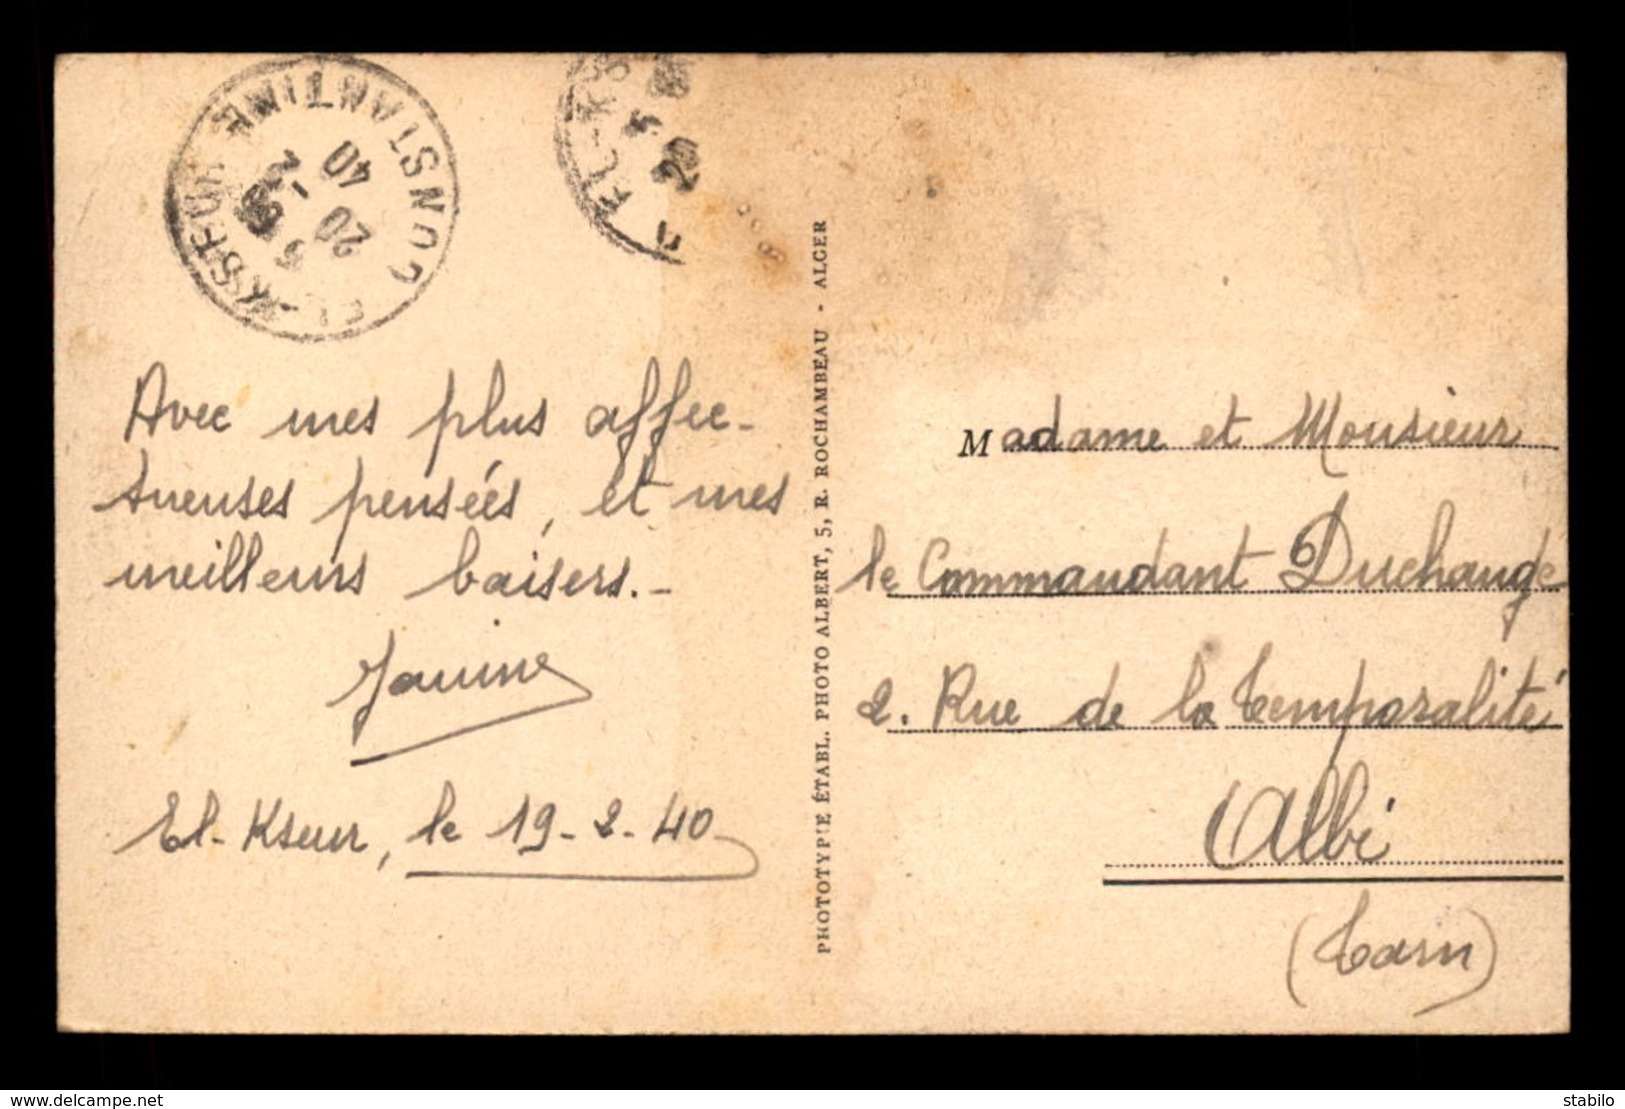 CONSTANTINE
EL-KSEUR
20 - 2
40
EL-KS
20
Avec mes plus affec-
tueuses pensées, et mes
meilleurs baisers.-
Janine
El-Kseur, le 19-2-40
PHOTOTYPIE ÉTABL. PHOTO ALBERT, 5, R. ROCHAMBEAU - ALGER
Madame et Monsieur
le Commandant Duchange
2. Rue de la Temporalité
Albi
(Tarn)
delcampe.net
stabilo